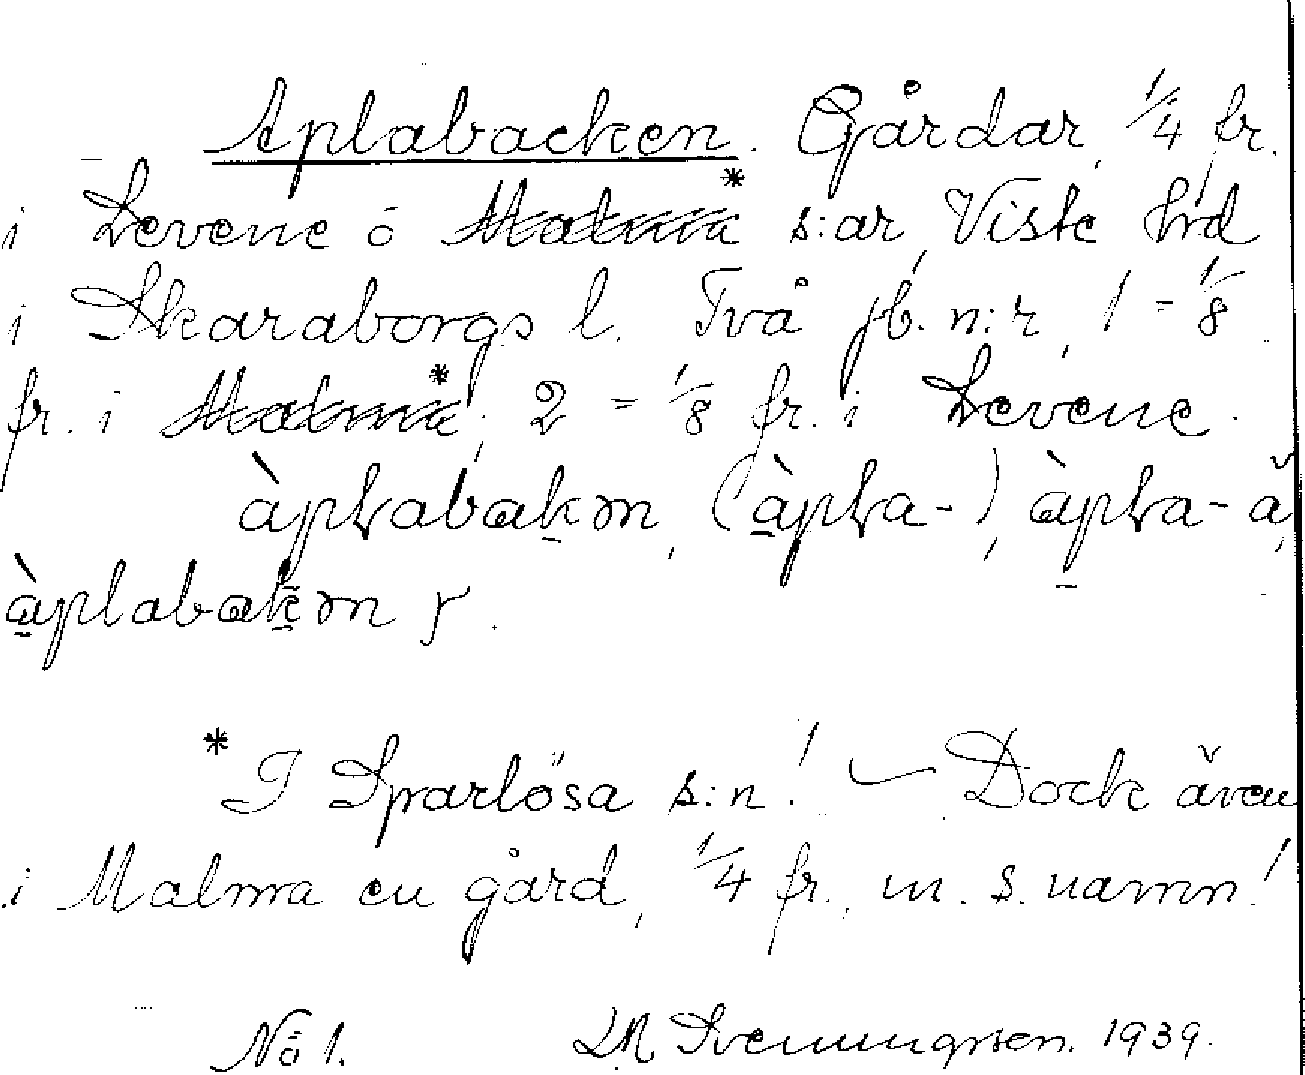 Aplabacken. Gårdar, 1/4 fr.
i Levene o Malma* s:ar, Viste hrd
i Skaraborgs l. Två jb. n:r, 1 = 1/8
fr. i Malma*, 2 = 1/8 fr. i Levene.
àpłabakən, (àpła-), àpła- ä,
àplabakən γ.
* I Sparlösa s:n! — Dock även
i Malma en gård, 1/4 fr., m. s. namn!
No 1. Svenungsson. 1939.